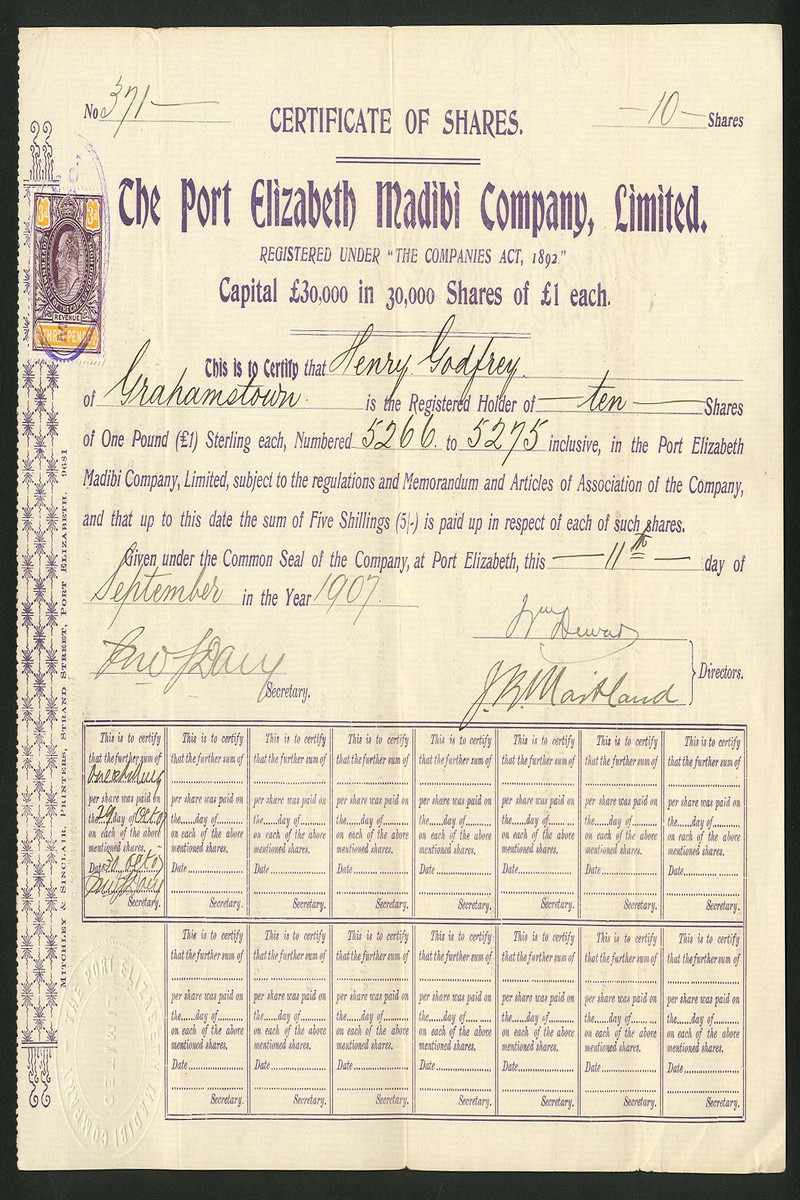 No 371 — CERTIFICATE OF SHARES. — 10 — Shares
The Port Elizabeth Madibi Company, Limited.
REGISTERED UNDER "THE COMPANIES ACT, 1892."
Capital £30,000 in 30,000 Shares of £1 each.
3d 3d
REVENUE
THREE PENCE
This is to Certify that Henry Godfrey.
of Grahamstown. is the Registered Holder of — ten — Shares
of One Pound (£1) Sterling each, Numbered 5266. to 5275 inclusive, in the Port Elizabeth
Madibi Company, Limited, subject to the regulations and Memorandum and Articles of Association of the Company,
and that up to this date the sum of Five Shillings (5/-) is paid up in respect of each of such shares.
Given under the Common Seal of the Company, at Port Elizabeth, this — 11th — day of
September in the Year 1907
Wm Dewar
Secretary.
J. R. Maitland
Directors.
This is to certify This is to certify This is to certify This is to certify This is to certify This is to certify This is to certify This is to certify
that the further sum of that the further sum of that the further sum of that the further sum of that the further sum of that the further sum of that the further sum of that the further sum of
per share was paid on per share was paid on per share was paid on per share was paid on per share was paid on per share was paid on per share was paid on per share was paid on
the 29 day of Oct 07 the......day of......... the......day of......... the......day of......... the......day of......... the......day of......... the......day of......... the......day of.........
on each of the above on each of the above on each of the above on each of the above on each of the above on each of the above on each of the above on each of the above
mentioned shares. mentioned shares. mentioned shares. mentioned shares. mentioned shares. mentioned shares. mentioned shares. mentioned shares.
Date Oct 07 Date Date Date Date Date Date Date
Secretary. Secretary. Secretary. Secretary. Secretary. Secretary. Secretary. Secretary.
This is to certify This is to certify This is to certify This is to certify This is to certify This is to certify This is to certify
that the further sum of that the further sum of that the further sum of that the further sum of that the further sum of that the further sum of that the further sum of
per share was paid on per share was paid on per share was paid on per share was paid on per share was paid on per share was paid on per share was paid on
the......day of......... the......day of......... the......day of......... the......day of......... the......day of......... the......day of......... the......day of.........
on each of the above on each of the above on each of the above on each of the above on each of the above on each of the above on each of the above
mentioned shares. mentioned shares. mentioned shares. mentioned shares. mentioned shares. mentioned shares. mentioned shares.
Date Date Date Date Date Date Date
Secretary. Secretary. Secretary. Secretary. Secretary. Secretary. Secretary.
MITCHLEY & SINCLAIR, PRINTERS, STRAND STREET, PORT ELIZABETH. 9681
THE PORT ELIZABETH MADIBI COMPANY
LIMITED